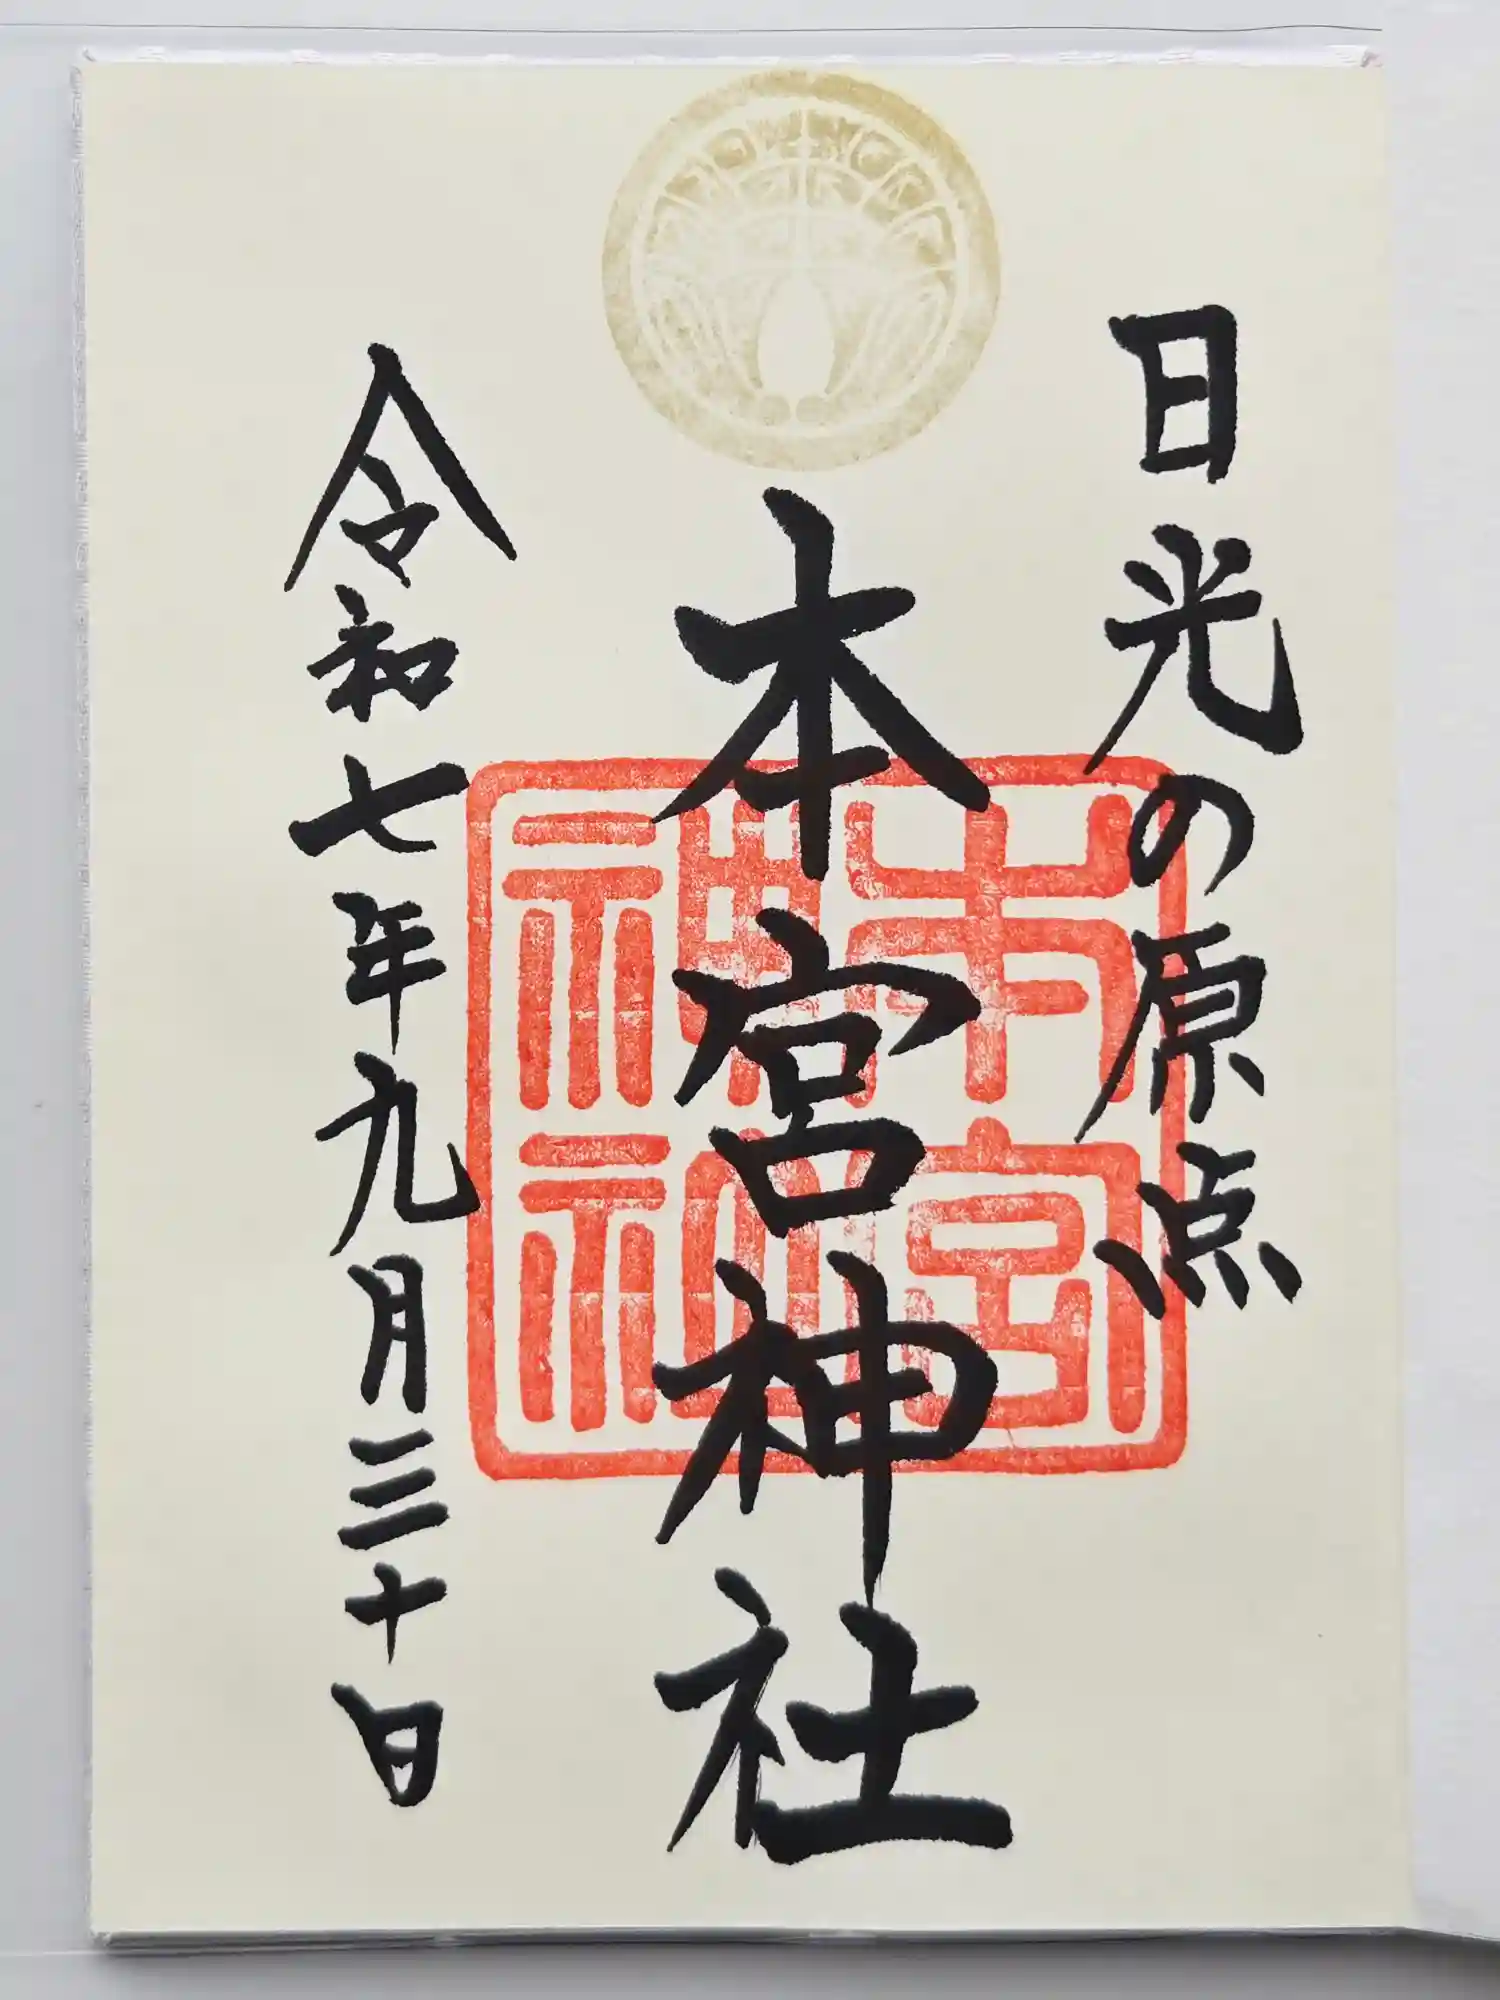 日光の原点
本宮神社
令和七年九月三十日